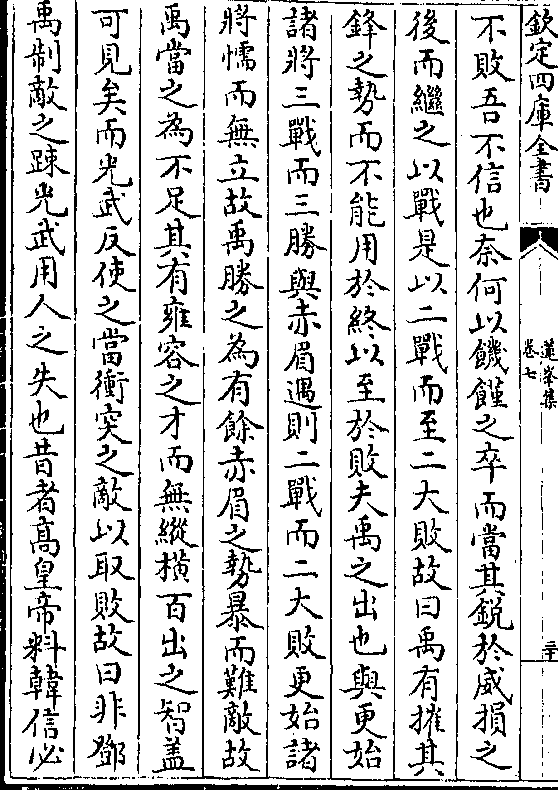 欽定四庫全書
蓮峯集
卷七
二十
不敗吾不信也奈何以饑饉之卒而當其鋭於威損之
後而繼之以戰是以二戰而至二大敗故曰禹有摧其
鋒之勢而不能用於終以至於敗夫禹之出也與更始
諸將三戰而三勝與赤眉遇則二戰而二大敗更始諸
將懦而無立故禹勝之為有餘赤眉之勢暴而難敵故
禹當之為不足其有雍容之才而無縱橫百出之智盖
可見矣而光武反使之當衝突之敵以取敗故曰非鄧
禹制敵之踈光武用人之失也昔者髙皇帝料韓信必